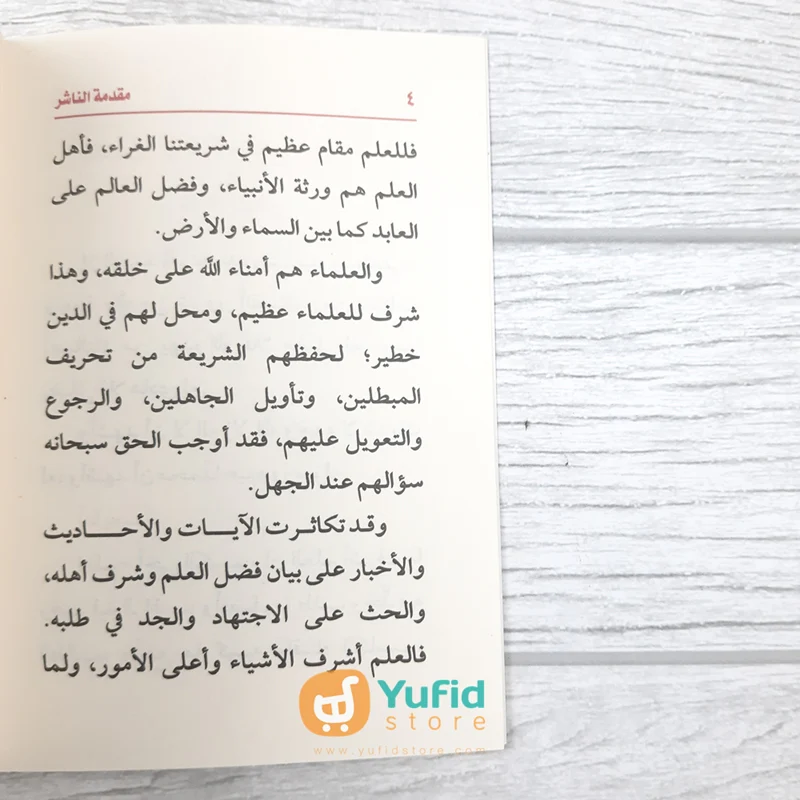 ٤ مقدمة الناشر
فللعلم مقام عظيم في شريعتنا الغراء، فأهل
العلم هم ورثة الأنبياء، وفضل العالم على
العابد كما بين السماء والأرض.
والعلماء هم أمناء الله على خلقه، وهذا
شرف للعلماء عظيم، ومحل لهم في الدين
خطير؛ لحفظهم الشريعة من تحريف
المبطلين، وتأويل الجاهلين، والرجوع
والتعويل عليهم، فقد أوجب الحق سبحانه
سؤالهم عند الجهل.
وقد تكاثرت الآيات والأحاديث
والأخبار على بيان فضل العلم وشرف أهله،
والحث على الاجتهاد والجد في طلبه.
فالعلم أشرف الأشياء وأعلى الأمور، ولما
Yufid
store
www.yufidstore.com